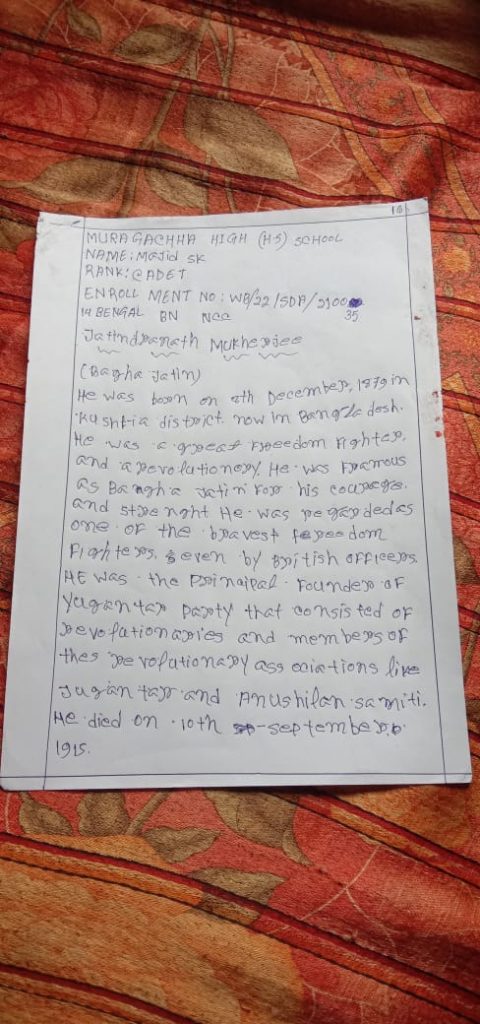 10
MURAGACHHA HIGH (HS) SCHOOL
NAME: Majid SK
RANK: CADET
ENROLL MENT NO: WB/22/SDA/2900
14 BENGAL BN NCC 35
Jatindranath Mukherjee
(Bagha Jatin)
He was born on 8th December, 1879 in
Kushtia district now in Bangla desh.
He was a great Freedom Fighter,
and a revolutionery. He was Framous
as Bangha Jatin For his courage.
and strenght He was regarded as
one of the bravest fereedom
Fighters, even by British officers.
HE was the Prinaipal Founder of
Yugantar party that consisted of
revolutionaries and members of
thes revolutionary ass ociations like
Jugantar and Anushilan samiti.
He died on 10th september,
1915.